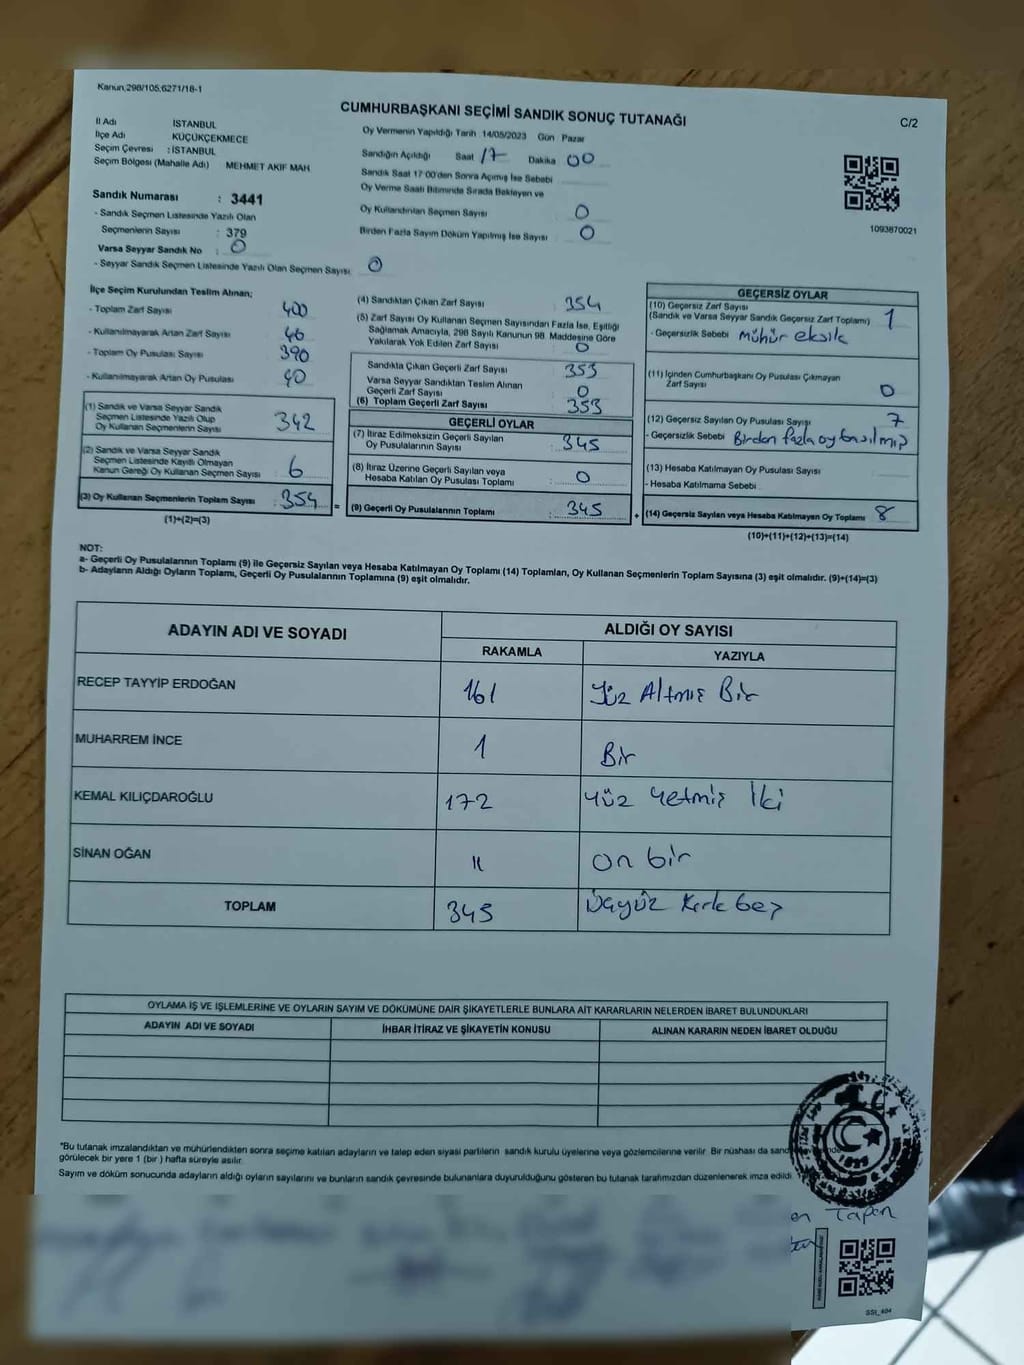 Kanun,298/105,6271/18-1
CUMHURBAŞKANI SEÇİMİ SANDIK SONUÇ TUTANAĞI
C/2
İl Adı İSTANBUL
İlçe Adı KÜÇÜKÇEKMECE
Seçim Çevresi : İSTANBUL
Seçim Bölgesi (Mahalle Adı) MEHMET AKİF MAH
Sandık Numarası : 3441
- Sandık Seçmen Listesinde Yazılı Olan
Seçmenlerin Sayısı : 379
Varsa Seyyar Sandık No : 0
- Seyyar Sandık Seçmen Listesinde Yazılı Olan Seçmen Sayısı 0
Oy Vermenin Yapıldığı Tarih 14/05/2023 Gün Pazar
Sandığın Açıldığı Saat 17 Dakika 00
Sandık Saat 17:00'den Sonra Açımış İse Sebebi
Oy Verme Saati Bitiminde Sırada Bekleyen ve
Oy Kullandırılan Seçmen Sayısı 0
Birden Fazla Sayım Döküm Yapılmış İse Sayısı 0
1093870021
İlçe Seçim Kurulundan Teslim Alınan;
- Toplam Zarf Sayısı 400
- Kullanılmayarak Artan Zarf Sayısı 46
- Toplam Oy Pusulası Sayısı 390
- Kullanılmayarak Artan Oy Pusulası 40
(1) Sandık ve Varsa Seyyar Sandık
Seçmen Listesinde Yazılı Olup
Oy Kullanan Seçmenlerin Sayısı 342
(2) Sandık ve Varsa Seyyar Sandık
Seçmen Listesinde Kayıtlı Olmayan
Kanun Gereği Oy Kullanan Seçmen Sayısı 6
(3) Oy Kullanan Seçmenlerin Toplam Sayısı : 354
(1)+(2)=(3)
=
(4) Sandıktan Çıkan Zarf Sayısı 354
(5) Zarf Sayısı Oy Kullanan Seçmen Sayısından Fazla İse, Eşitliği
Sağlamak Amacıyla, 298 Sayılı Kanunun 98. Maddesine Göre
Yakılarak Yok Edilen Zarf Sayısı 0
Sandıkta Çıkan Geçerli Zarf Sayısı 353
Varsa Seyyar Sandıktan Teslim Alınan
Geçerli Zarf Sayısı 0
(6) Toplam Geçerli Zarf Sayısı 353
GEÇERLİ OYLAR
(7) İtiraz Edilmeksizin Geçerli Sayılan
Oy Pusulalarının Sayısı 345
(8) İtiraz Üzerine Geçerli Sayılan veya
Hesaba Katılan Oy Pusulası Toplamı : 0
(9) Geçerli Oy Pusulalarının Toplamı 345
+
GEÇERSİZ OYLAR
(10) Geçersiz Zarf Sayısı
(Sandık ve Varsa Seyyar Sandık Geçersiz Zarf Toplamı) 1
- Geçersizlik Sebebi mühür eksik
(11) İçinden Cumhurbaşkanı Oy Pusulası Çıkmayan
Zarf Sayısı 0
(12) Geçersiz Sayılan Oy Pusulası Sayısı 7
- Geçersizlik Sebebi Birden fazla oy basılmış
(13) Hesaba Katılmayan Oy Pusulası Sayısı
- Hesaba Katılmama Sebebi
(14) Geçersiz Sayılan veya Hesaba Katılmayan Oy Toplamı 8
(10)+(11)+(12)+(13)=(14)
NOT:
a- Geçerli Oy Pusulalarının Toplamı (9) ile Geçersiz Sayılan veya Hesaba Katılmayan Oy Toplamı (14) Toplamları, Oy Kullanan Seçmenlerin Toplam Sayısına (3) eşit olmalıdır. (9)+(14)=(3)
b- Adayların Aldığı Oyların Toplamı, Geçerli Oy Pusulalarının Toplamına (9) eşit olmalıdır.
ADAYIN ADI VE SOYADI ALDIĞI OY SAYISI
RAKAMLA YAZIYLA
RECEP TAYYİP ERDOĞAN 161 Yüz Altmış Bir
MUHARREM İNCE 1 Bir
KEMAL KILIÇDAROĞLU 172 Yüz Yetmiş İki
SİNAN OĞAN 11 on bir
TOPLAM 345 Üçyüz Kırk beş
OYLAMA İŞ VE İŞLEMLERİNE VE OYLARIN SAYIM VE DÖKÜMÜNE DAİR ŞİKAYETLERLE BUNLARA AİT KARARLARIN NELERDEN İBARET BULUNDUKLARI
ADAYIN ADI VE SOYADI İHBAR İTİRAZ VE ŞİKAYETİN KONUSU ALINAN KARARIN NEDEN İBARET OLDUĞU
*Bu tutanak imzalandıktan ve mühürlendikten sonra seçime katılan adayların ve talep eden siyasi partilerin sandık kurulu üyelerine veya gözlemcilerine verilir. Bir nüshası da
görülecek bir yere 1 (bir) hafta süreyle asılır.
Sayım ve döküm sonucunda adayların aldığı oyların sayılarını ve bunların sandık çevresinde bulunanlara duyurulduğunu gösteren bu tutanak tarafımızdan düzenlenerek imza edildi.
SSI_404